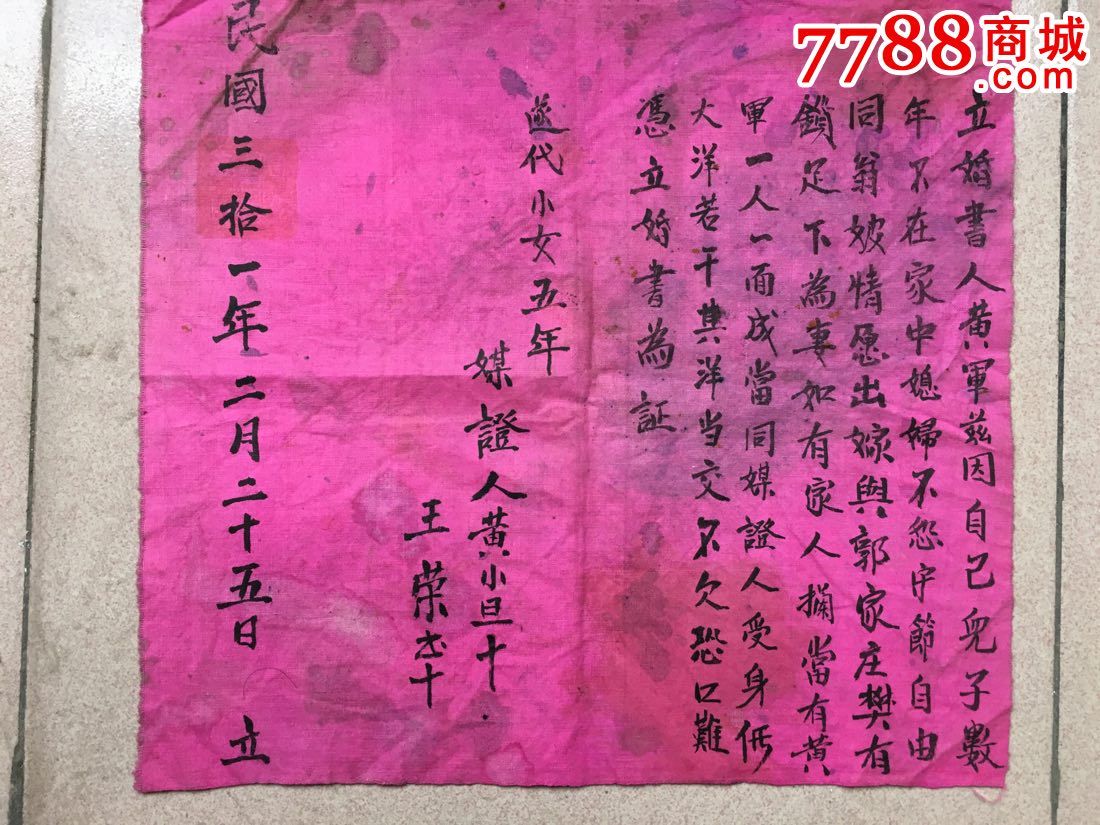 立婚書人黄軍兹因自己兒子數
年不在家中媳婦不怨守節自由
同翁婆情愿出嫁與郭家庄樊有
鎖足下為妻如有家人攔當有黄
軍一人一面成當同媒證人受身價
大洋若干其洋当交不欠恐口難
憑立婚書為証
遂代小女五年
媒證人黄小旦十
王荣十
民國三拾一年二月二十五日 立
7788商城
.com